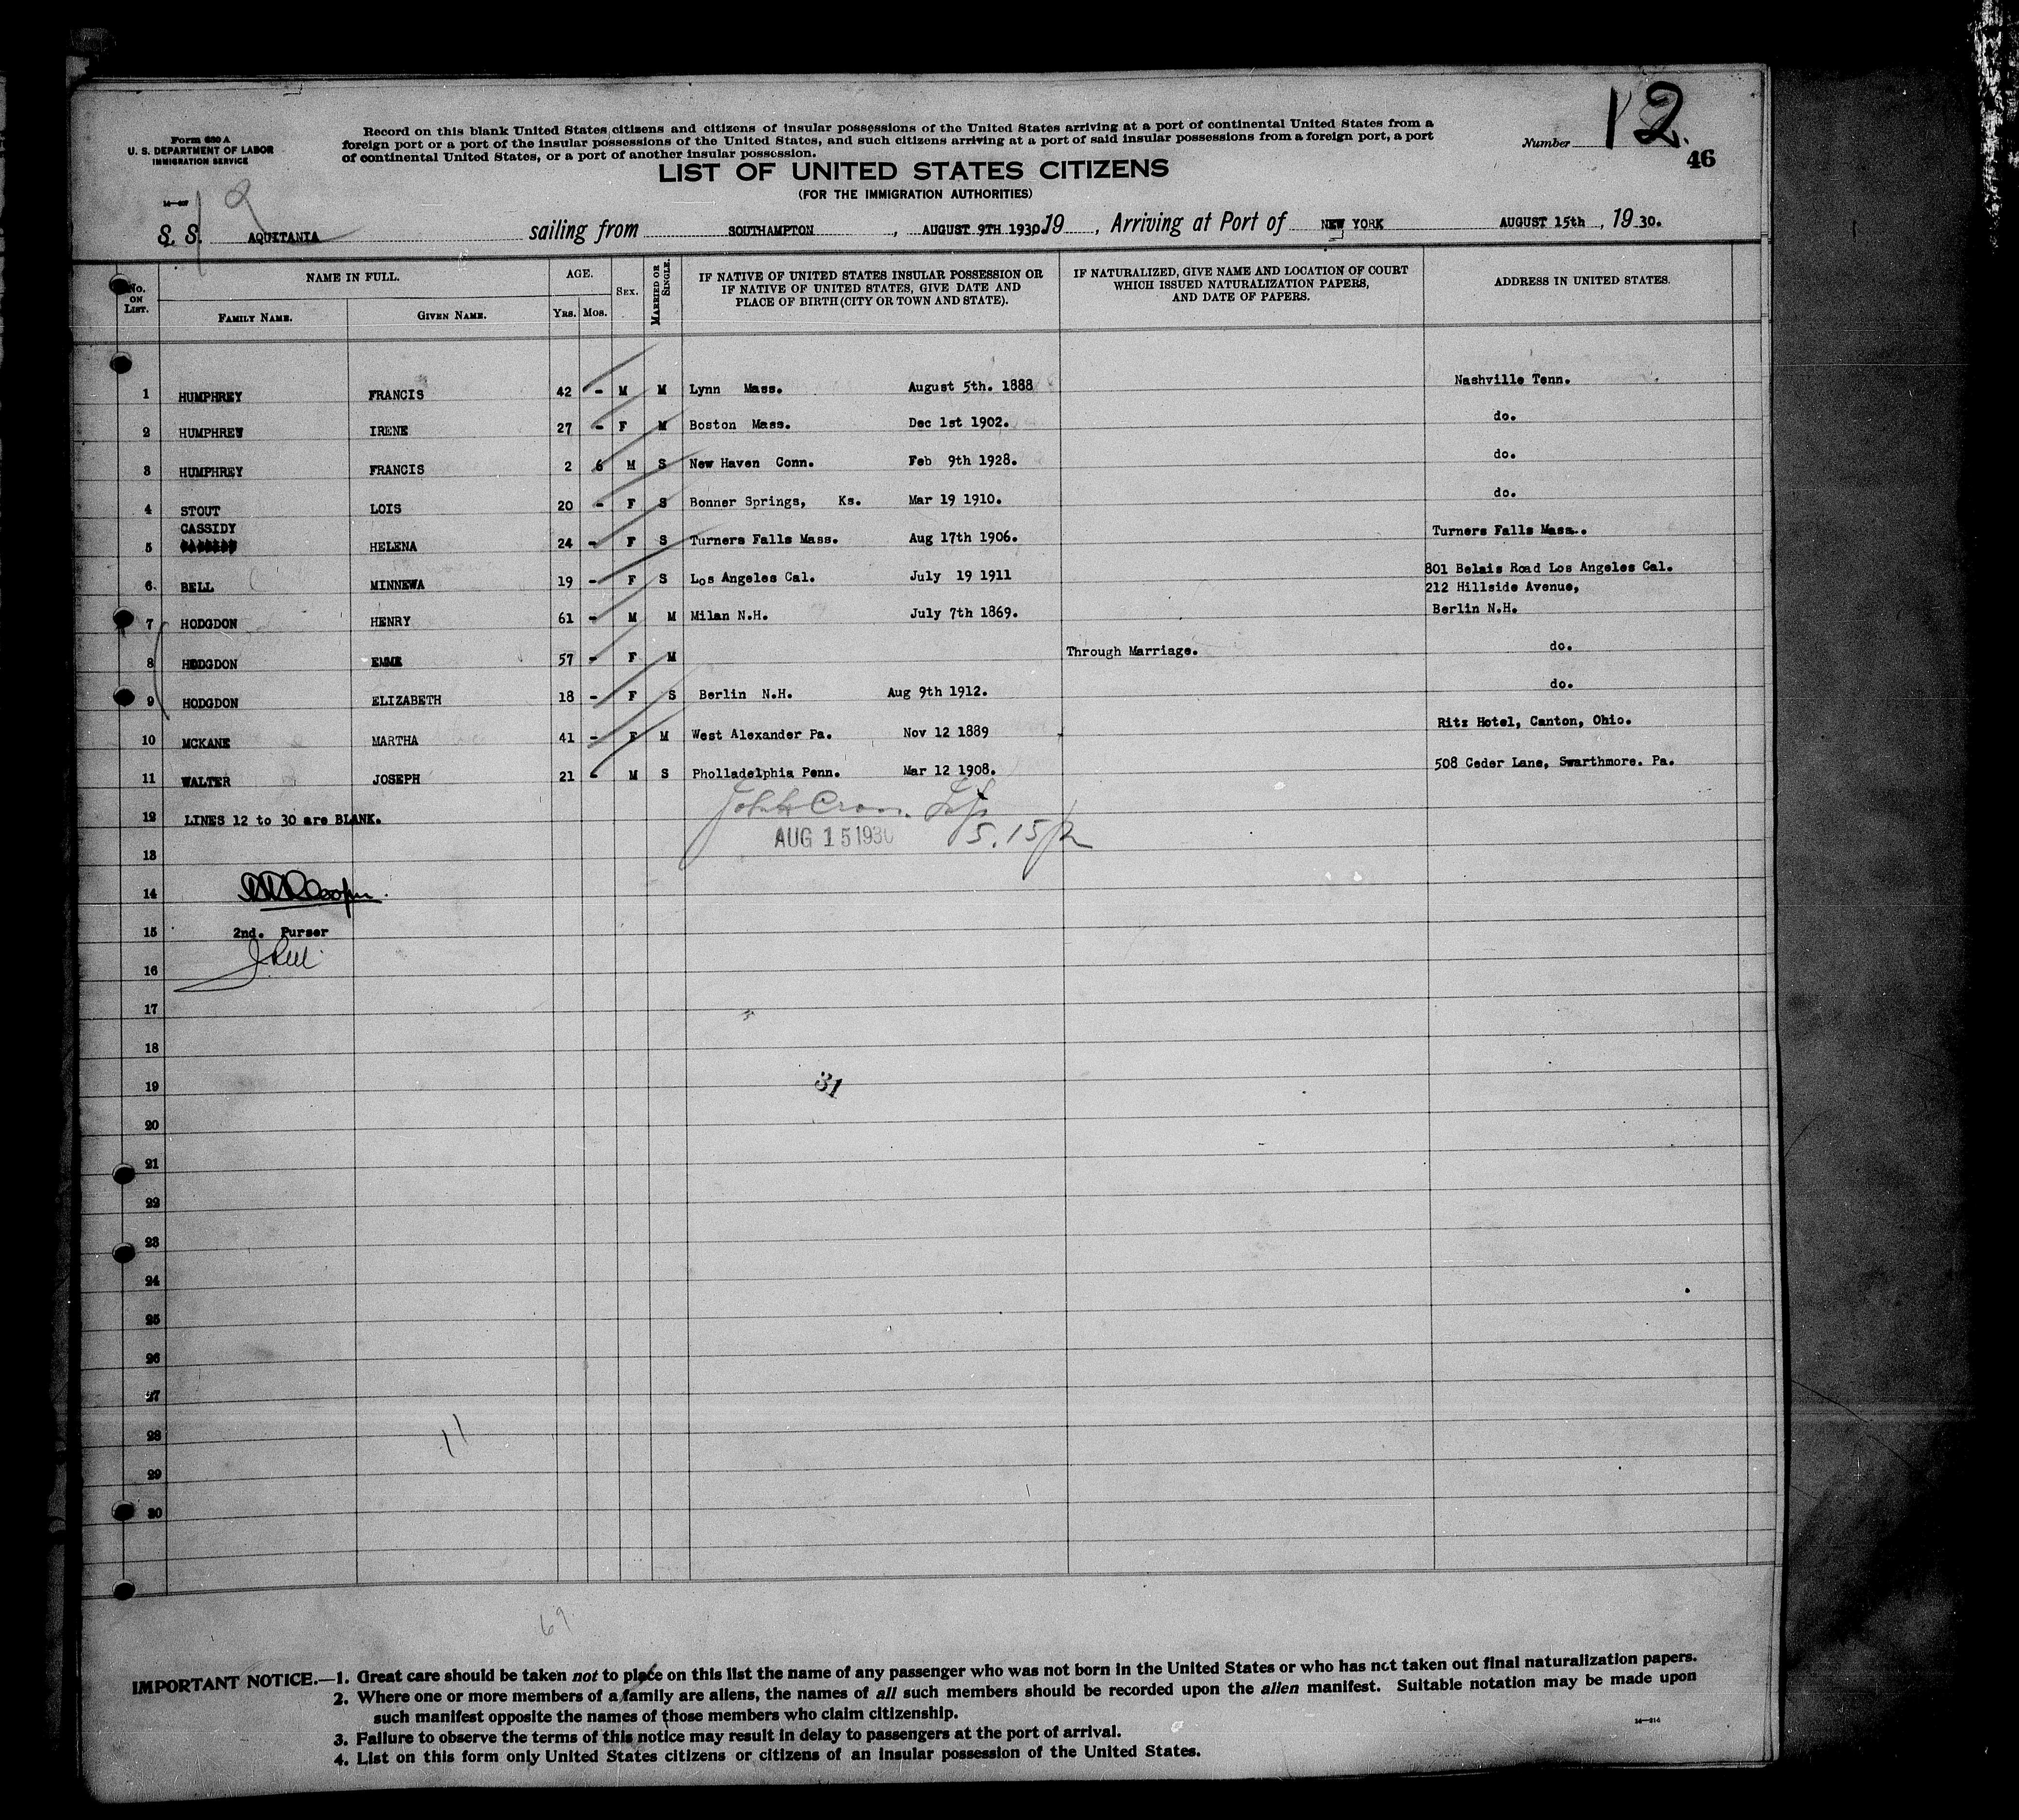 Form 630 A
U. S. DEPARTMENT OF LABOR
IMMIGRATION SERVICE
Record on this blank United States citizens and citizens of insular possessions of the United States arriving at a port of continental United States from a
foreign port or a port of the insular possessions of the United States, and such citizens arriving at a port of said insular possessions from a foreign port, a port
of continental United States, or a port of another insular possession.
Number 12.
46
LIST OF UNITED STATES CITIZENS
(FOR THE IMMIGRATION AUTHORITIES)
12
S. S. AQUITANIA sailing from SOUTHAMPTON, AUGUST 9TH 1930. 19, Arriving at Port of NEW YORK AUGUST 15th, 1930.
No. ON LIST. NAME IN FULL. FAMILY NAME. GIVEN NAME. AGE. YRS. MOS. SEX. MARRIED OR SINGLE. IF NATIVE OF UNITED STATES INSULAR POSSESSION OR IF NATIVE OF UNITED STATES, GIVE DATE AND PLACE OF BIRTH (CITY OR TOWN AND STATE). IF NATURALIZED, GIVE NAME AND LOCATION OF COURT WHICH ISSUED NATURALIZATION PAPERS, AND DATE OF PAPERS. ADDRESS IN UNITED STATES.
1 HUMPHREY FRANCIS 42 - M M Lynn Mass. August 5th. 1888 Nashville Tenn.
2 HUMPHREY IRENE 27 - F M Boston Mass. Dec 1st 1902. do.
3 HUMPHREY FRANCIS 2 6 M S New Haven Conn. Feb 9th 1928. do.
4 STOUT LOIS 20 - F S Bonner Springs, Ks. Mar 19 1910. do.
5 CASSIDY HELENA 24 - F S Turners Falls Mass. Aug 17th 1906. Turners Falls Mass..
6. BELL MINNEWA 19 - F S Los Angeles Cal. July 19 1911 801 Belais Road Los Angeles Cal.
212 Hillside Avenue,
7 HODGDON HENRY 61 - M M Milan N.H. July 7th 1869. Berlin N.H.
8 HODGDON EMME 57 - F M Through Marriage. do.
9 HODGDON ELIZABETH 18 - F S Berlin N.H. Aug 9th 1912. do.
10 MCKANE MARTHA 41 - F M West Alexander Pa. Nov 12 1889 Ritz Hotel, Canton, Ohio.
11 WALTER JOSEPH 21 - M S Pholladelphia Penn. Mar 12 1908. 508 Ceder Lane, Swarthmore. Pa.
12 LINES 12 to 30 are BLANK.
AUG 15 1930
13
14
15 2nd. Purser
16
17
18
19 31
20
21
22
23
24
25
26
27
28 11
29
30
69
IMPORTANT NOTICE.—1. Great care should be taken not to place on this list the name of any passenger who was not born in the United States or who has not taken out final naturalization papers.
2. Where one or more members of a family are aliens, the names of all such members should be recorded upon the alien manifest. Suitable notation may be made upon
such manifest opposite the names of those members who claim citizenship.
3. Failure to observe the terms of this notice may result in delay to passengers at the port of arrival.
4. List on this form only United States citizens or citizens of an insular possession of the United States.